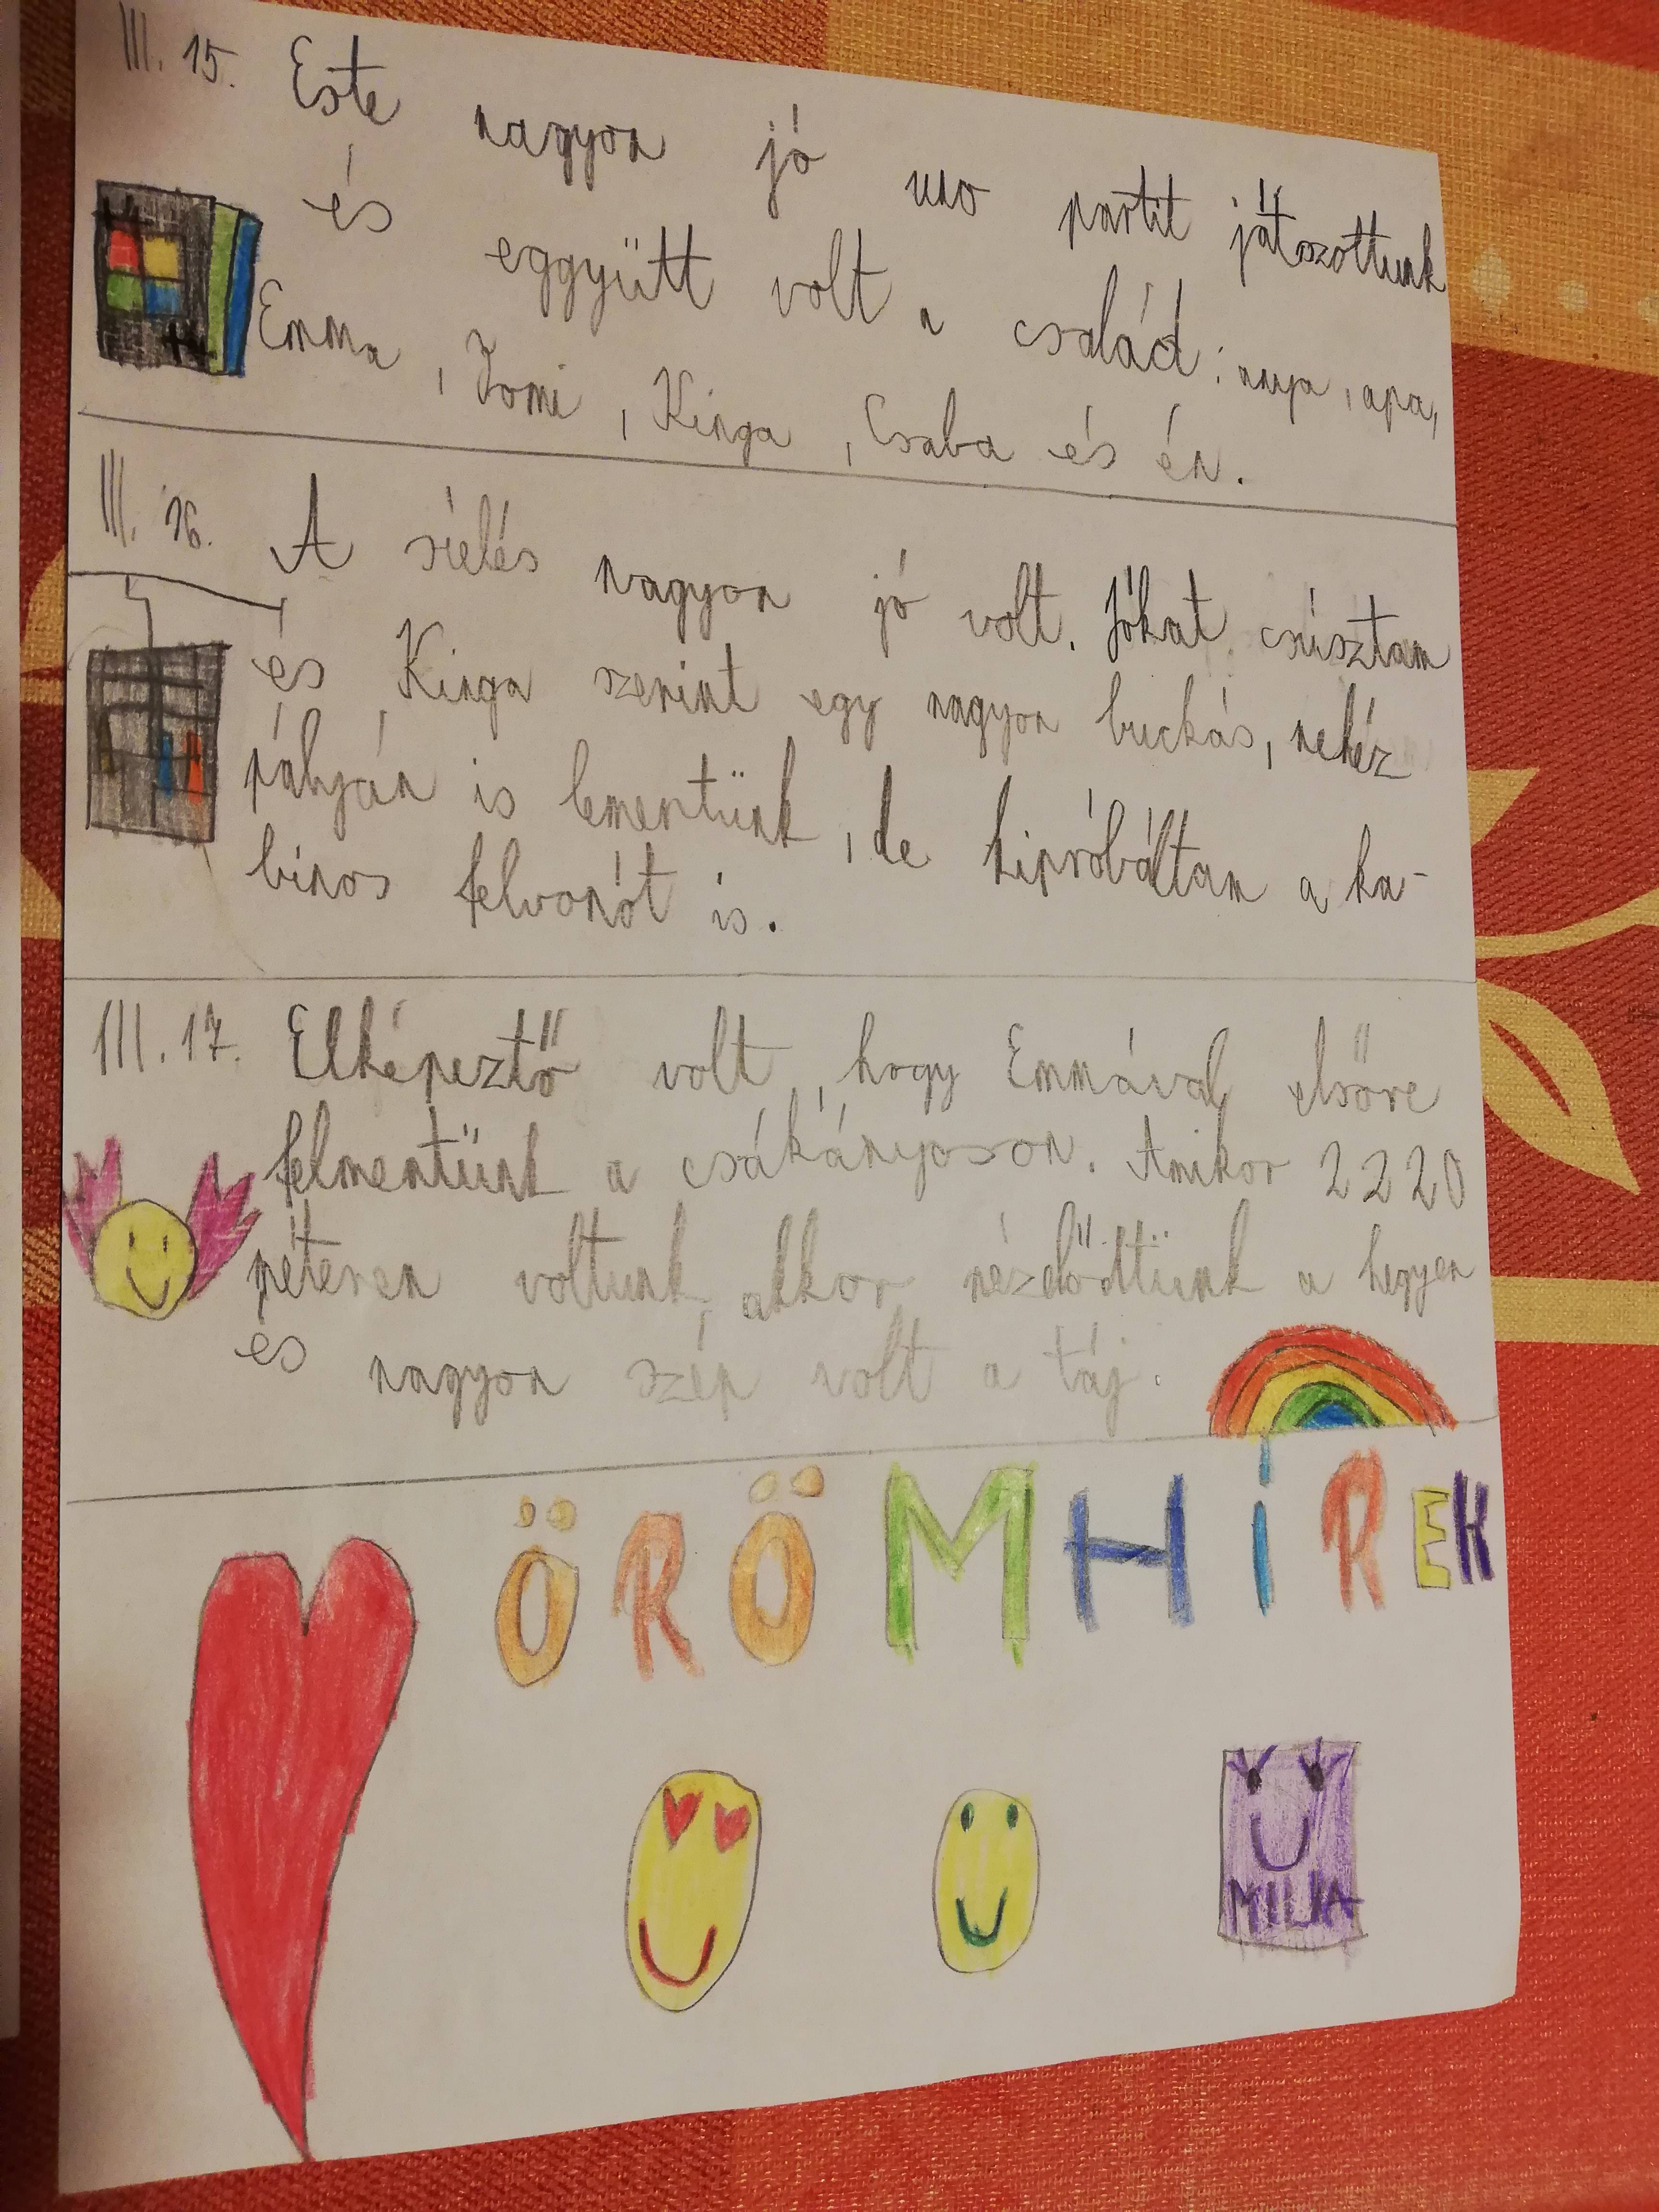 III. 15. Este nagyon jó uno partit játszottunk
és eggyütt volt a család: anya, apa,
Emma, Tomi, Kinga, Csaba és én.
III. 16. A síelés nagyon jó volt. Jókat csúsztam
és Kinga szerint egy nagyon buckás, nehéz
pályán is lementünk, de kipróbáltam a ka-
binos felvonót is.
III. 17. Elképeztő volt, hogy Emmával elsőre
felmentünk a csákányoson. Amikor 2220
méteren voltunk, akkor nézelődtünk a hegyen
és nagyon szép volt a táj.
ÖRÖMHÍREK
MILIA